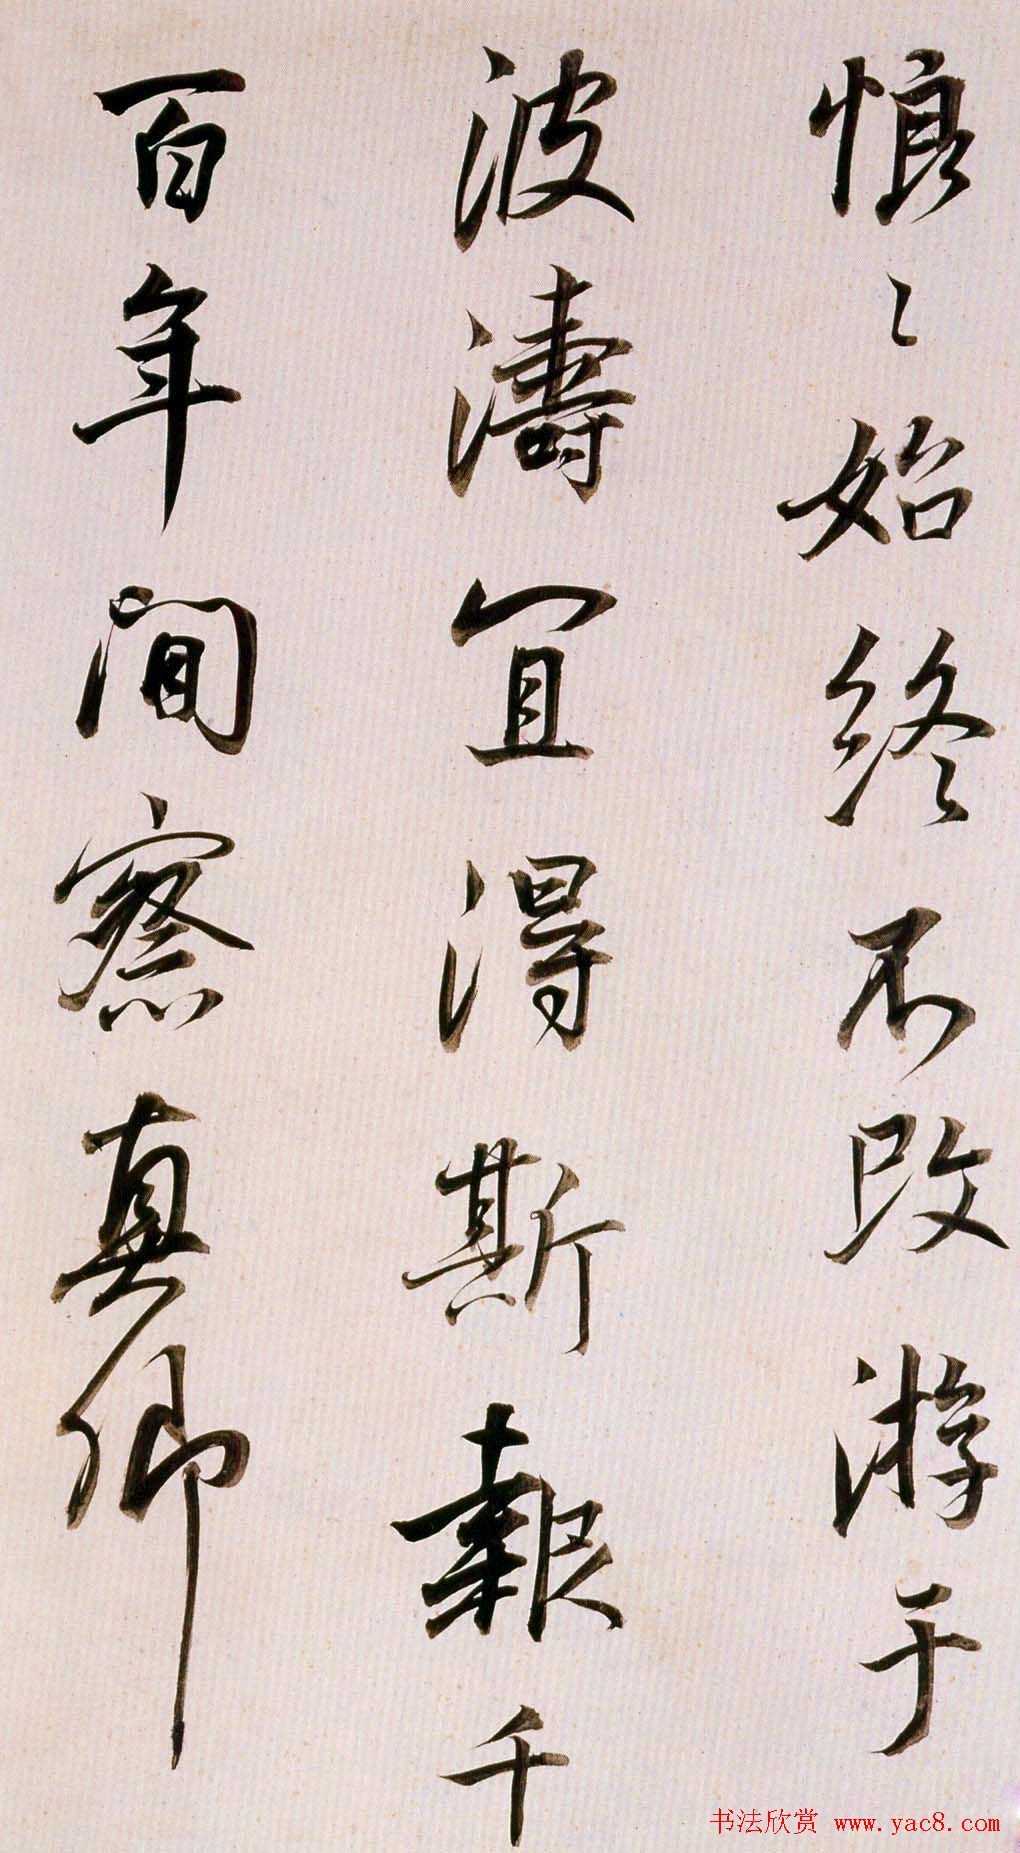 悢〻始終不改游于
波濤宜得斯報千
百年間察真卿
书法欣赏 www.yac8.com